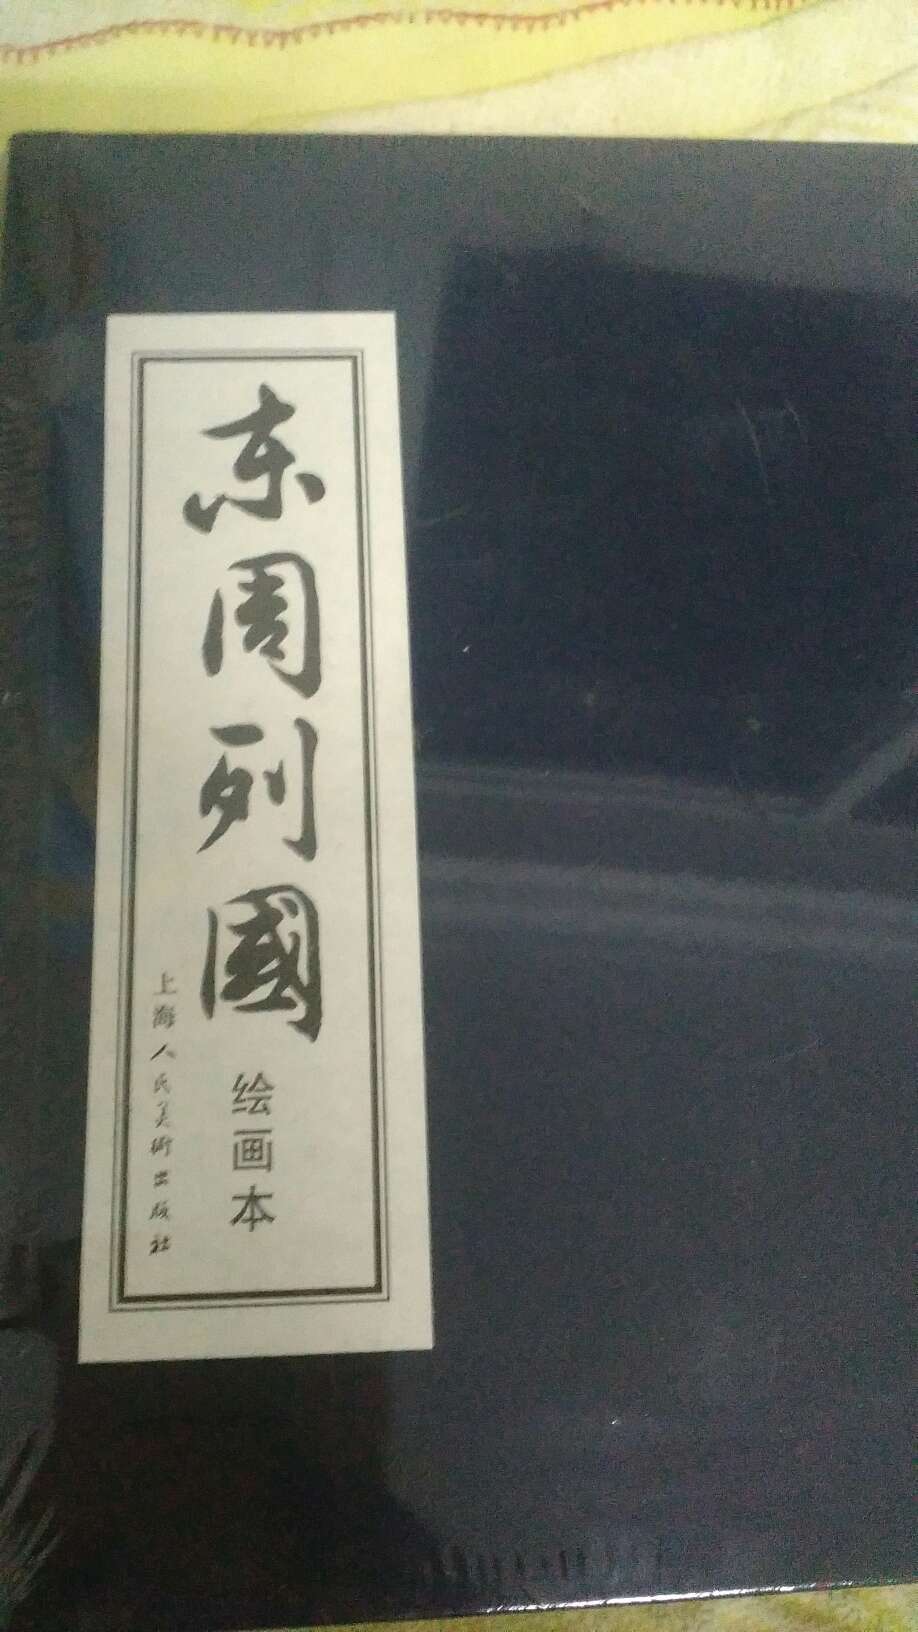 东周列國
绘画本
上海人民美術出版社